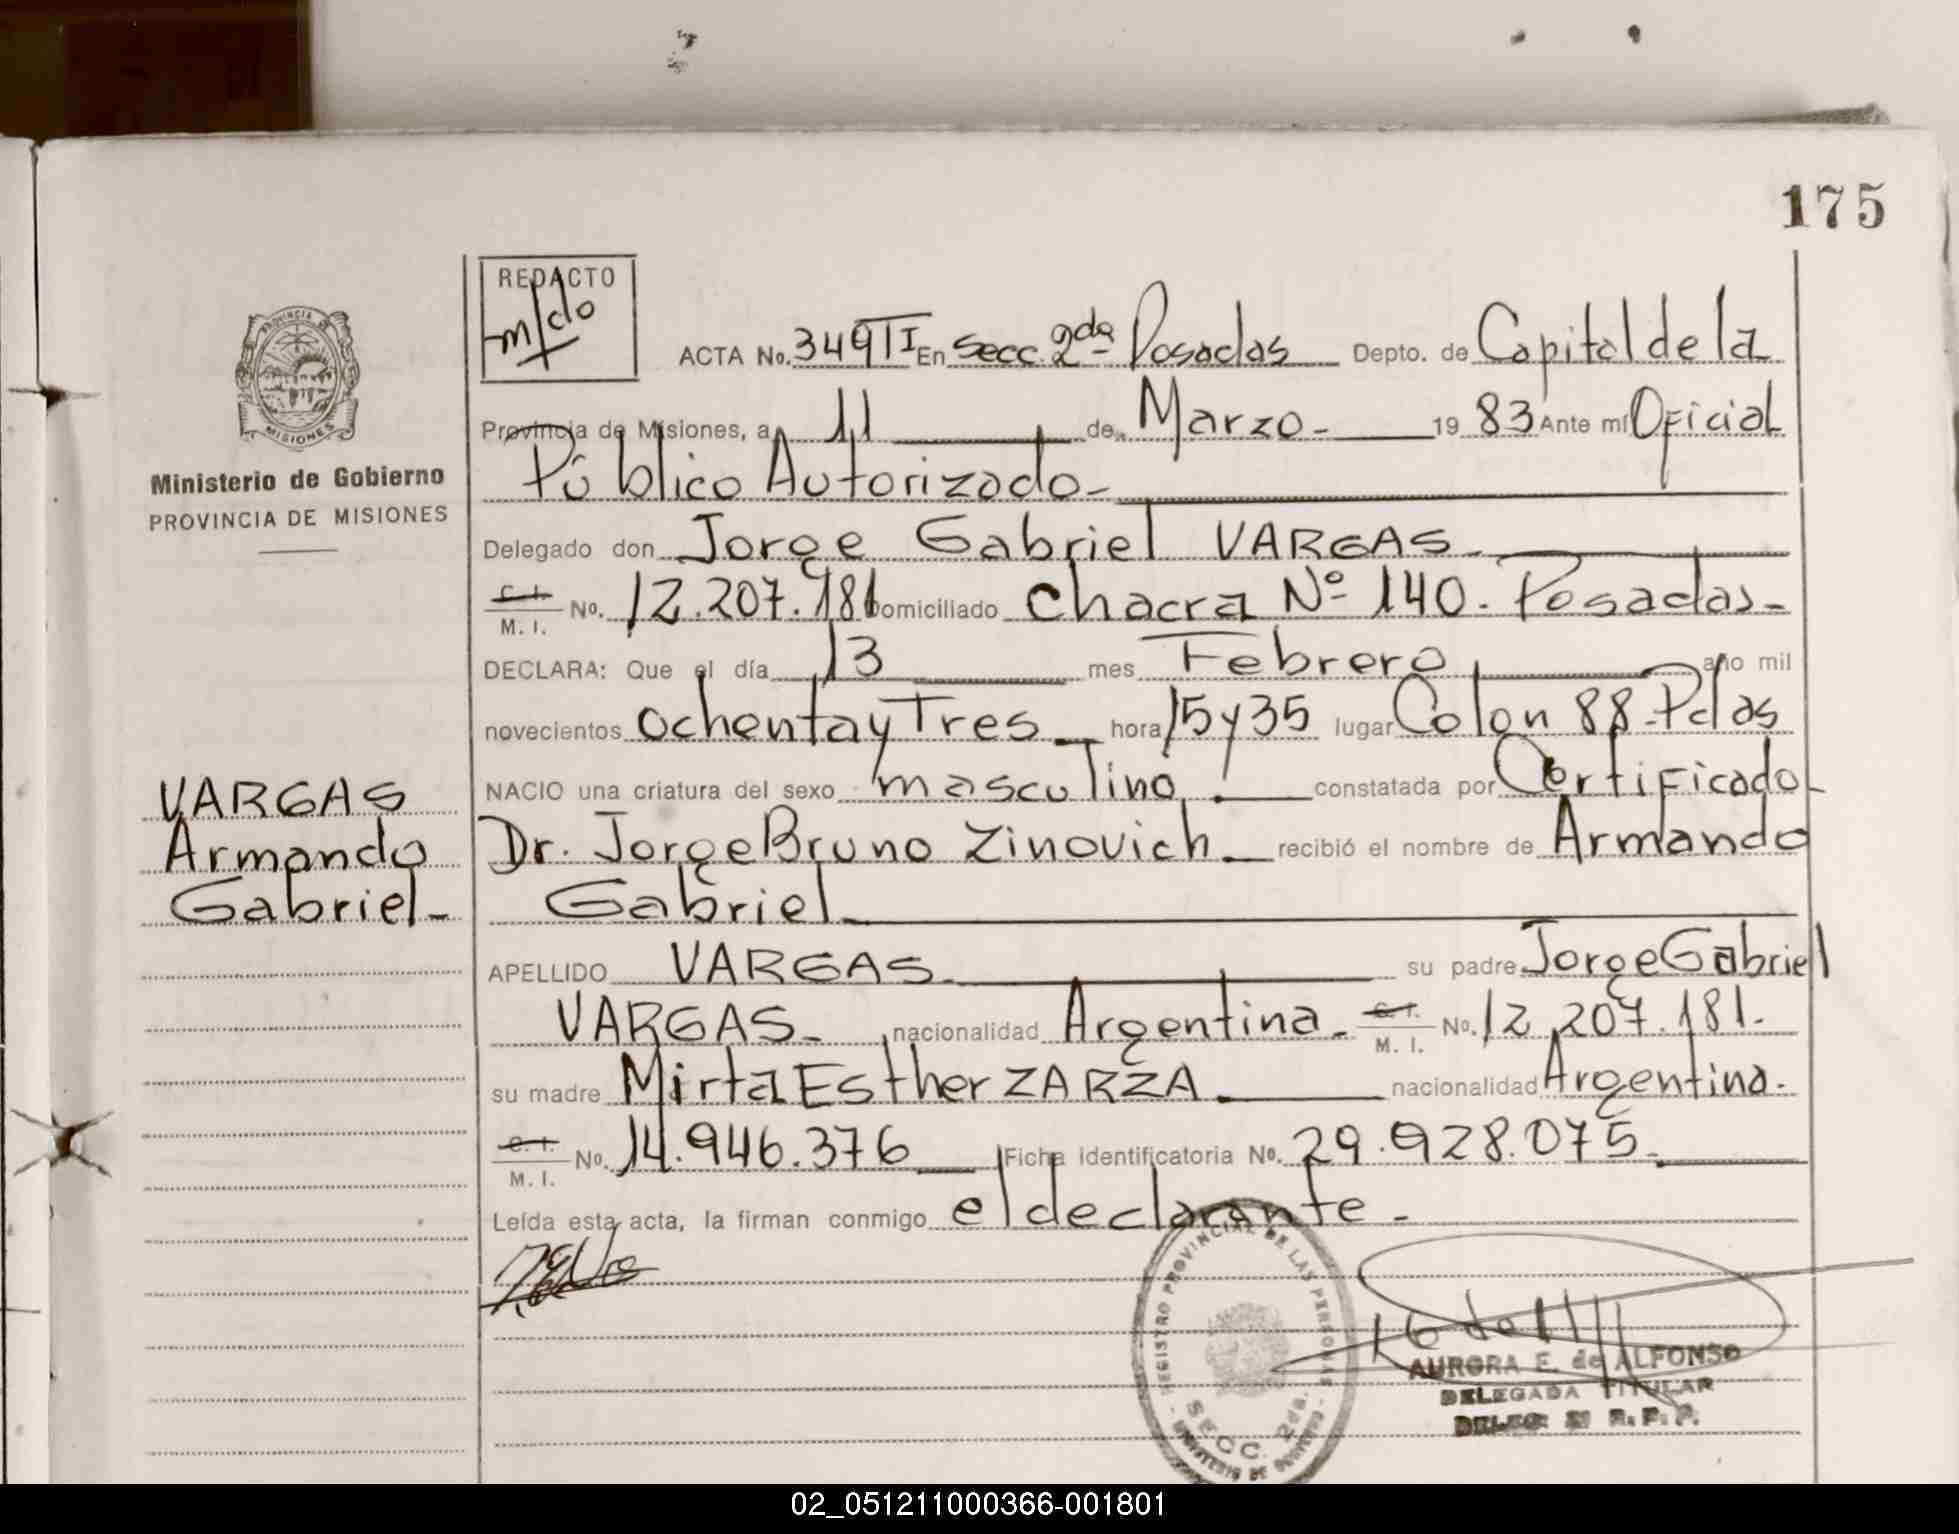 175
REDACTO
m/do
ACTA No. 349 TI En Secc. 2da Posadas Depto. de Capital de la
Provincia de Misiones, a 11 de Marzo - 19 83 Ante mí Oficial
Público Autorizado -
Ministerio de Gobierno
PROVINCIA DE MISIONES
Delegado don Jorge Gabriel VARGAS -
C. I.
M. I. No. 12.207.181 Domiciliado Chacra Nº 140. Posadas -
DECLARA: Que el día 13 mes Febrero año mil
novecientos ochenta y Tres hora 15 y 35 lugar Colon 88 - Pdas
NACIO una criatura del sexo masculino constatada por Certificado
VARGAS
Armando
Gabriel -
Dr. Jorge Bruno Zinovich - recibió el nombre de Armando
Gabriel
APELLIDO VARGAS su padre Jorge Gabriel
VARGAS - nacionalidad Argentina - C. I.
M. I. No. 12.207.181.
su madre Mirta Esther ZARZA nacionalidad Argentina.
C. I.
M. I. No. 14.946.376 Ficha identificatoria No. 29.928.075
Leída esta acta, la firman conmigo el declarante -
PROVINCIA DE
MISIONES
REGISTRO PROVINCIAL DE LAS PERSONAS
SECC. 2da.
MINISTERIO DE GOBIERNO
AURORA E. de ALFONSO
DELEGADA TITULAR
02_051211000366-001801